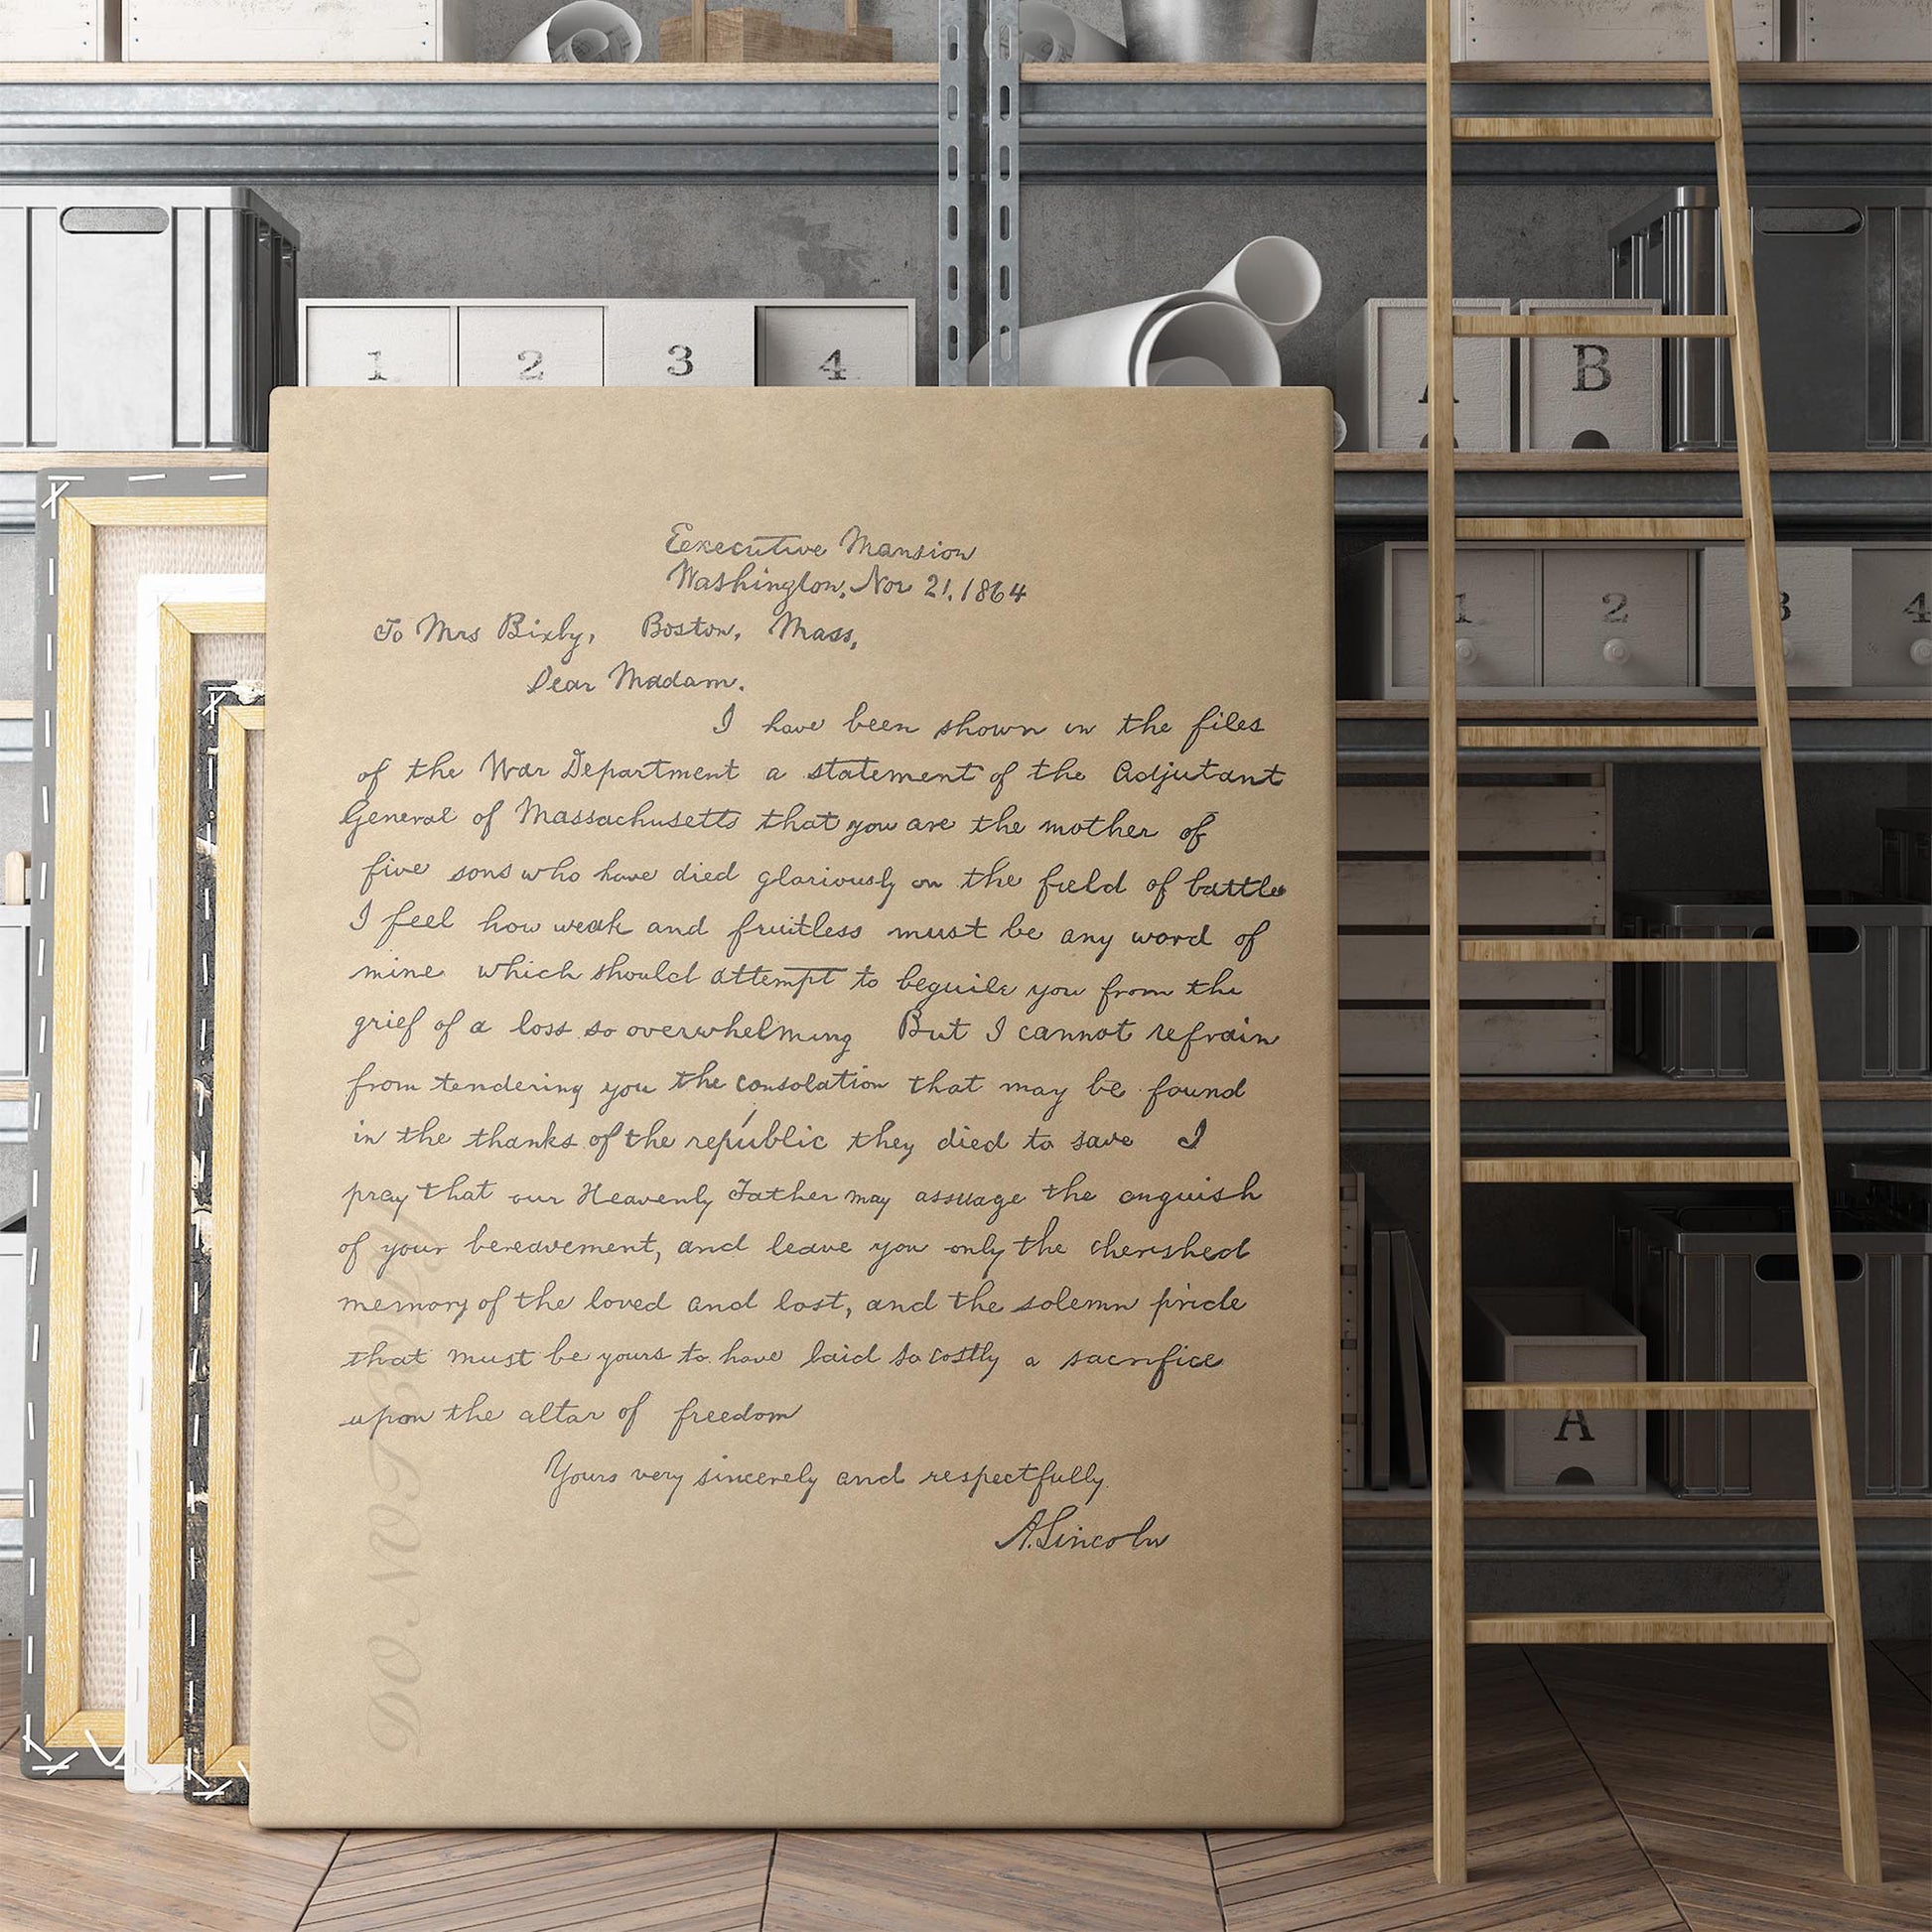 1 2 3 4
A B
1 2 3 4
A
Executive Mansion
Washington, Nov 21, 1864
To Mrs Bixby, Boston, Mass,
Dear Madam.
I have been shown in the files
of the War Department a statement of the Adjutant
General of Massachusetts that you are the mother of
five sons who have died gloriously on the field of battle
I feel how weak and fruitless must be any word of
mine which should attempt to beguile you from the
grief of a loss so overwhelming But I cannot refrain
from tendering you the consolation that may be found
in the thanks of the republic they died to save I
pray that our Heavenly Father may assuage the anguish
of your bereavement, and leave you only the cherished
memory of the loved and lost, and the solemn pride
that must be yours to have laid so costly a sacrifice
upon the altar of freedom
Yours very sincerely and respectfully.
A. Lincoln
DO NOT COPY